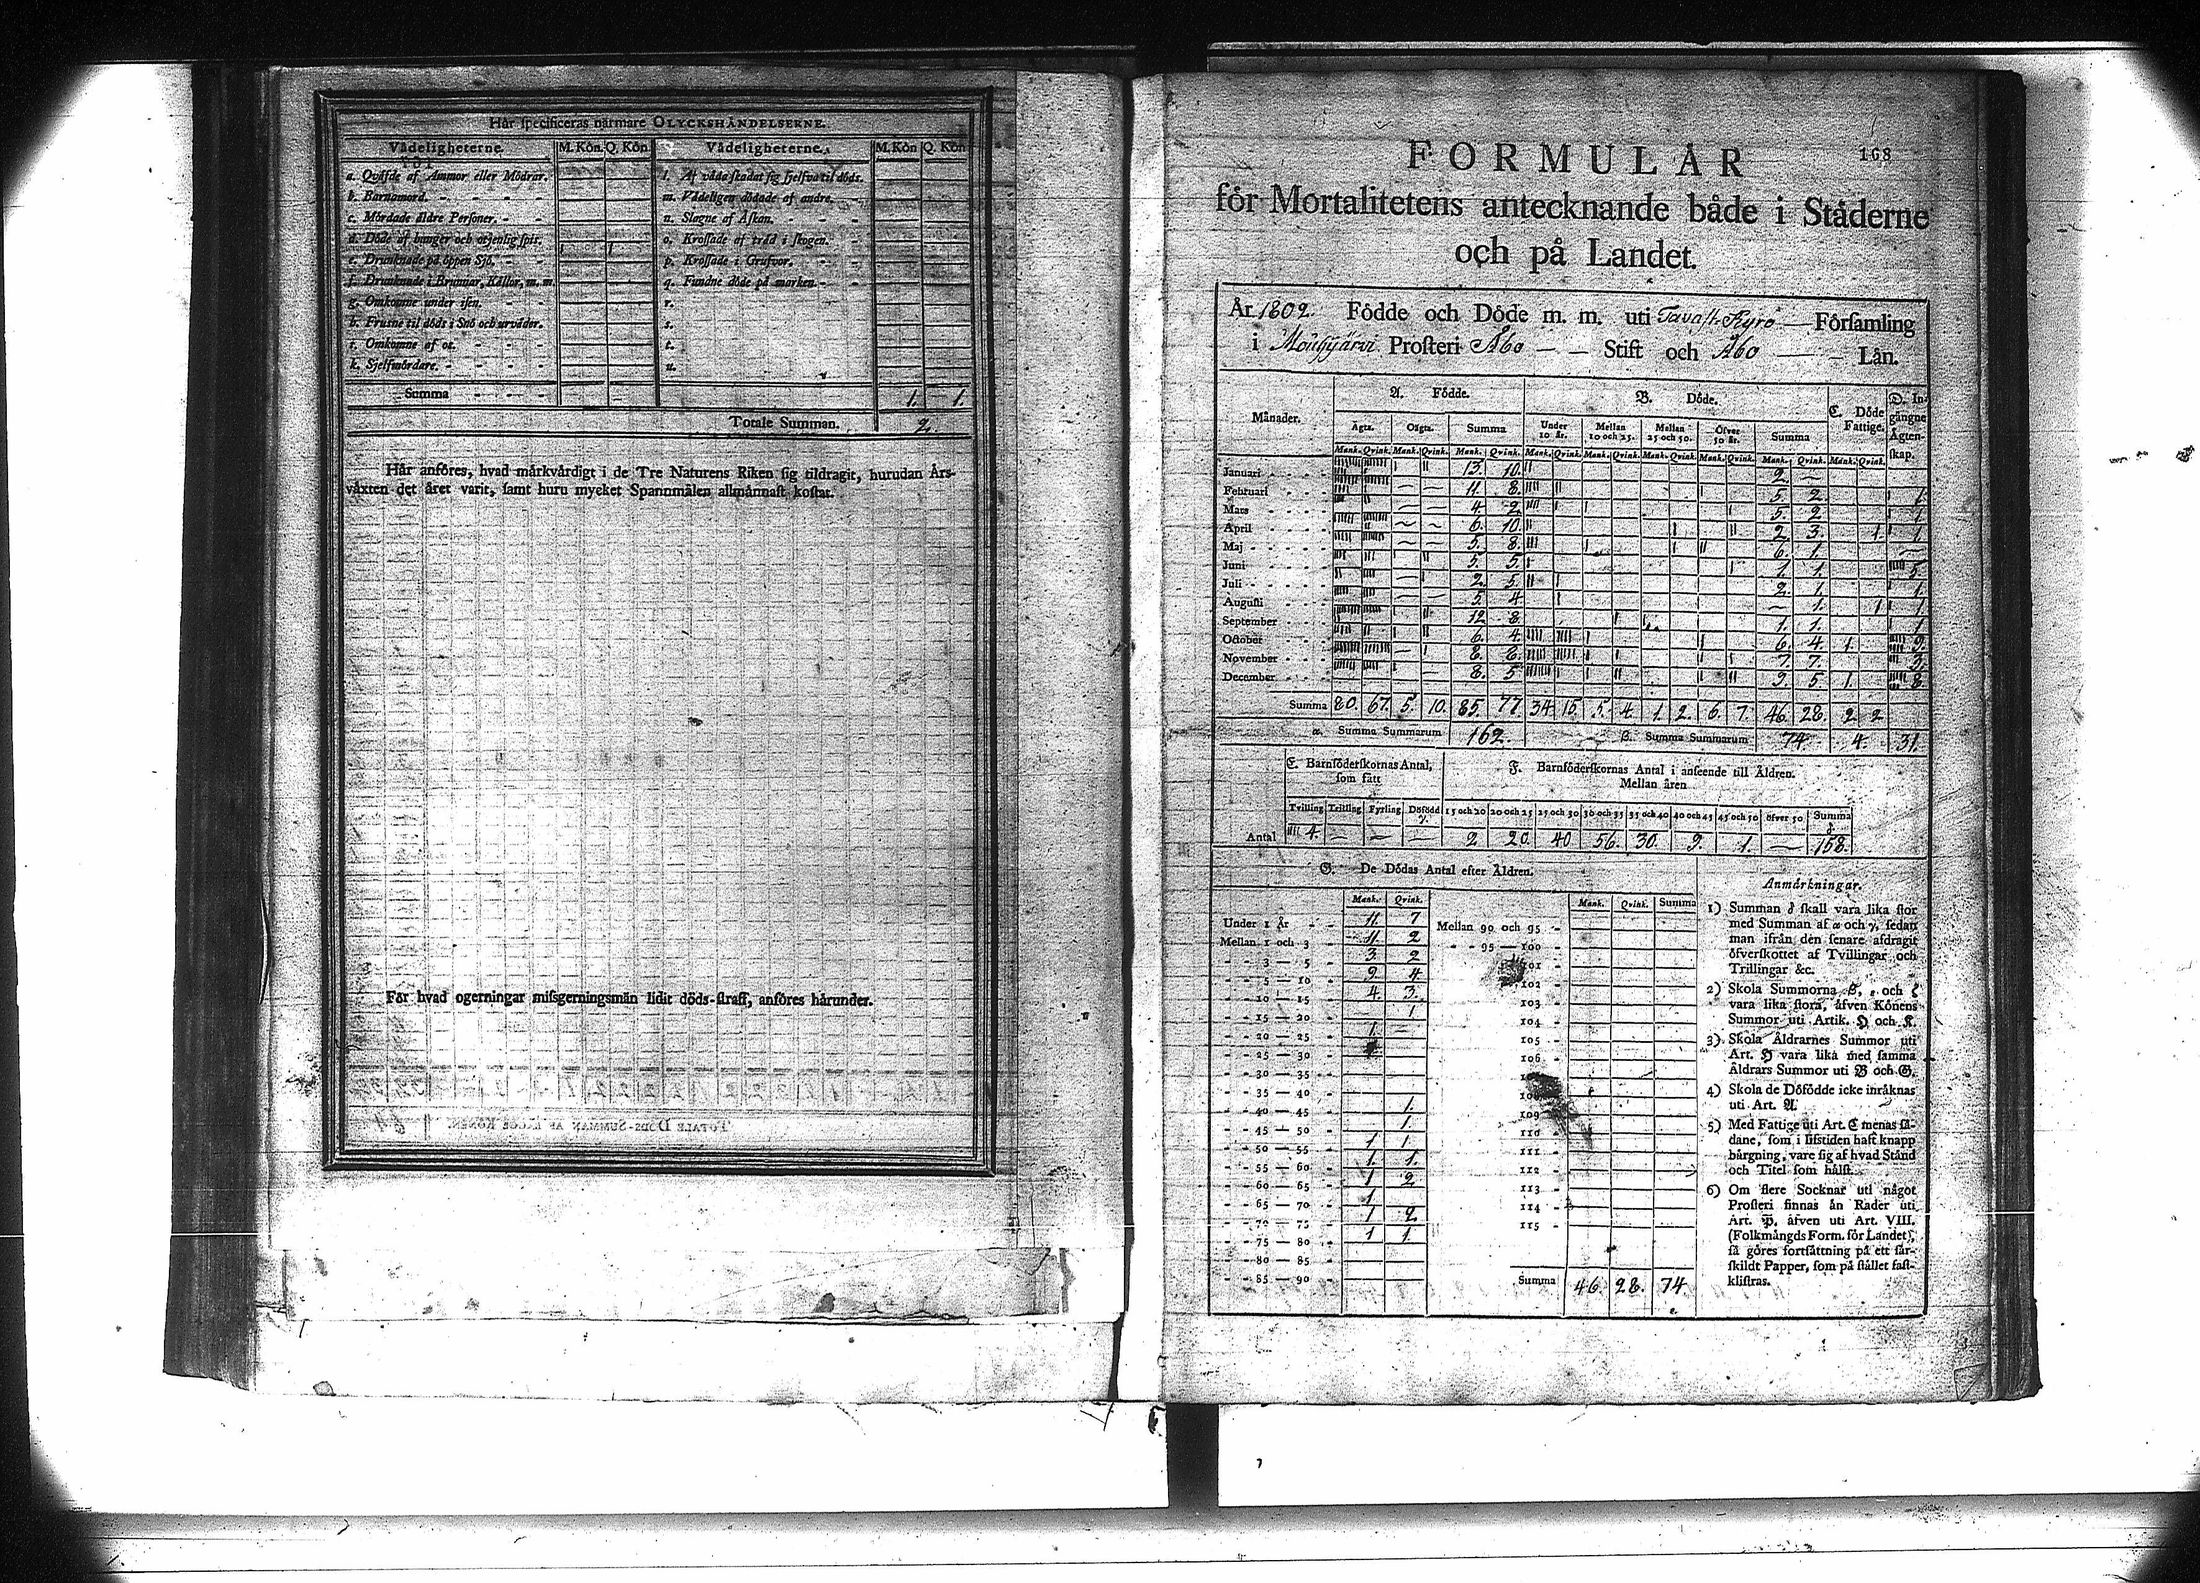 Här specificeras närmare OLYCKSHÄNDELSERNE.
Vådeligheterne. M. Kön. Q. Kön. Vådeligheterne. M. Kön Q. Kön
a. Qväfde af Ammor eller Mödrar. l. Af våda skadat sig sjelfva til döds.
b. Barnamord. m. Vådeligen dödade af andre.
c. Mördade äldre Personer. n. Slagne af Åskan.
d. Döde af hunger och otjenlig spis. o. Krossade af träd i skogen.
e. Drunknade på öppen Sjö. p. Krossade i Grufvor.
f. Drunknade i Brunnar, Källor, m. m. q. Fundne döde på marken.
g. Omkomne under isen. r.
h. Frusne til döds i Snö och urväder. s.
i. Omkomne af os. t.
k. Sjelfmördare. u.
Summa 1. 1.
Totale Summan. 2.
Här anföres, hvad märkvärdigt i de Tre Naturens Riken sig tildragit, hurudan Års-
växten det året varit, samt huru mycket Spannmålen allmännast kostat.
För hvad ogerningar missgerningsmän lidit döds-straff, anföres härunder.
168
FORMULÄR
för Mortalitetens antecknande både i Städerne
och på Landet.
År 1802. Födde och Döde m. m. uti Tavast Kyro Församling
i Mouhijärvi Prosteri Åbo Stift och Åbo Län.
Månader. A. Födde. B. Döde. C. Döde Fattige. D. Ingångne Ägtenskap.
Ägta. Oägta. Summa Under 10 år. Mellan 10 och 25. Mellan 25 och 50. Öfver 50 år. Summa
Mank. Qvink. Mank. Qvink. Mank. Qvink. Mank. Qvink. Mank. Qvink. Mank. Qvink. Mank. Qvink. Mank. Qvink. Mank. Qvink.
Januari 13. 10. 2. —
Februari 11. 8. 5. 2. 1.
Mars 4. 2. 5. 2 1.
April 6. 10. 2. 3. 1. 1
Maj 5. 8. 6. 1. —
Juni 5. 5. 1. 1. 5.
Juli 2. 5. 2. 1 1.
Augusti 5. 4 — 1. 1 1.
September 12 8. 1. 1. 1
October 6. 4. 6. 4 1. 9.
November 8. 8. 7. 7. 3.
December 8. 5 9. 5. 1. 8.
Summa 80. 67. 5. 10. 85. 77. 34 15. 5. 4. 1. 2. 6. 7. 46. 28. 2. 2
α. Summa Summarum 162. β. Summa Summarum 74. 4. 31.
E. Barnföderskornas Antal, som fått F. Barnföderskornas Antal i anseende till Åldren.
Mellan åren
Tvilling Trilling Fyrling Döfödd γ. 15 och 20 20 och 25 25 och 30 30 och 35 35 och 40 40 och 45 45 och 50 öfver 50 Summa δ
Antal 4. — — — 2 20. 40 56. 30. 9. 1. — 158.
G. De Dödas Antal efter Åldren.
Mank. Qvink. Mank. Qvink. Summa
Under 1 År 11. 7 Mellan 90 och 95
Mellan 1 och 3 11. 2 95 — 100
3 — 5 3 2 101
5 — 10 9. 4. 102
10 — 15 4. 3. 103
15 — 20 1 104
20 — 25 1. — 105
25 — 30 106
30 — 35
35 — 40 108
40 — 45 1. 109
45 — 50 1. 110
50 — 55 1 1 111
55 — 60 1. 1. 112
60 — 65 1 2 113
65 — 70 1 114
70 — 75 1 2 115
75 — 80 1 1.
80 — 85
85 — 90 Summa 46. 28. 74.
Anmärkningar.
1) Summan δ skall vara lika stor
med Summan af α och γ, sedan
man ifrån den senare afdragit
öfverskottet af Tvillingar och
Trillingar &c.
2) Skola Summorna β, ε och ζ
vara lika stora, äfven Könens
Summor uti Artik. H och K.
3) Skola Åldrarnes Summor uti
Art. H vara lika med samma
Åldrars Summor uti B och G.
4) Skola de Döfödde icke inräknas
uti Art. A.
5) Med Fattige uti Art. C menas så-
dane, som i sifstiden haft knapp
bärgning, vare sig af hvad Stånd
och Titel som hälst.
6) Om flere Socknar uti något
Prosteri finnas än Rader uti
Art. P, äfven uti Art. VIII.
(Folkmängds Form. för Landet),
så göres fortsättning på ett sär-
skildt Papper, som på stället fast-
klistras.